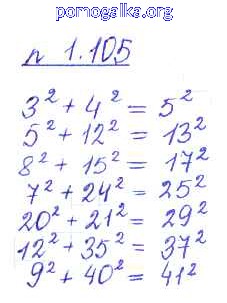 pomogalka.org
n 1.105
3² + 4² = 5²
5² + 12² = 13²
8² + 15² = 17²
7² + 24² = 25²
20² + 21² = 29²
12² + 35² = 37²
9² + 40² = 41²